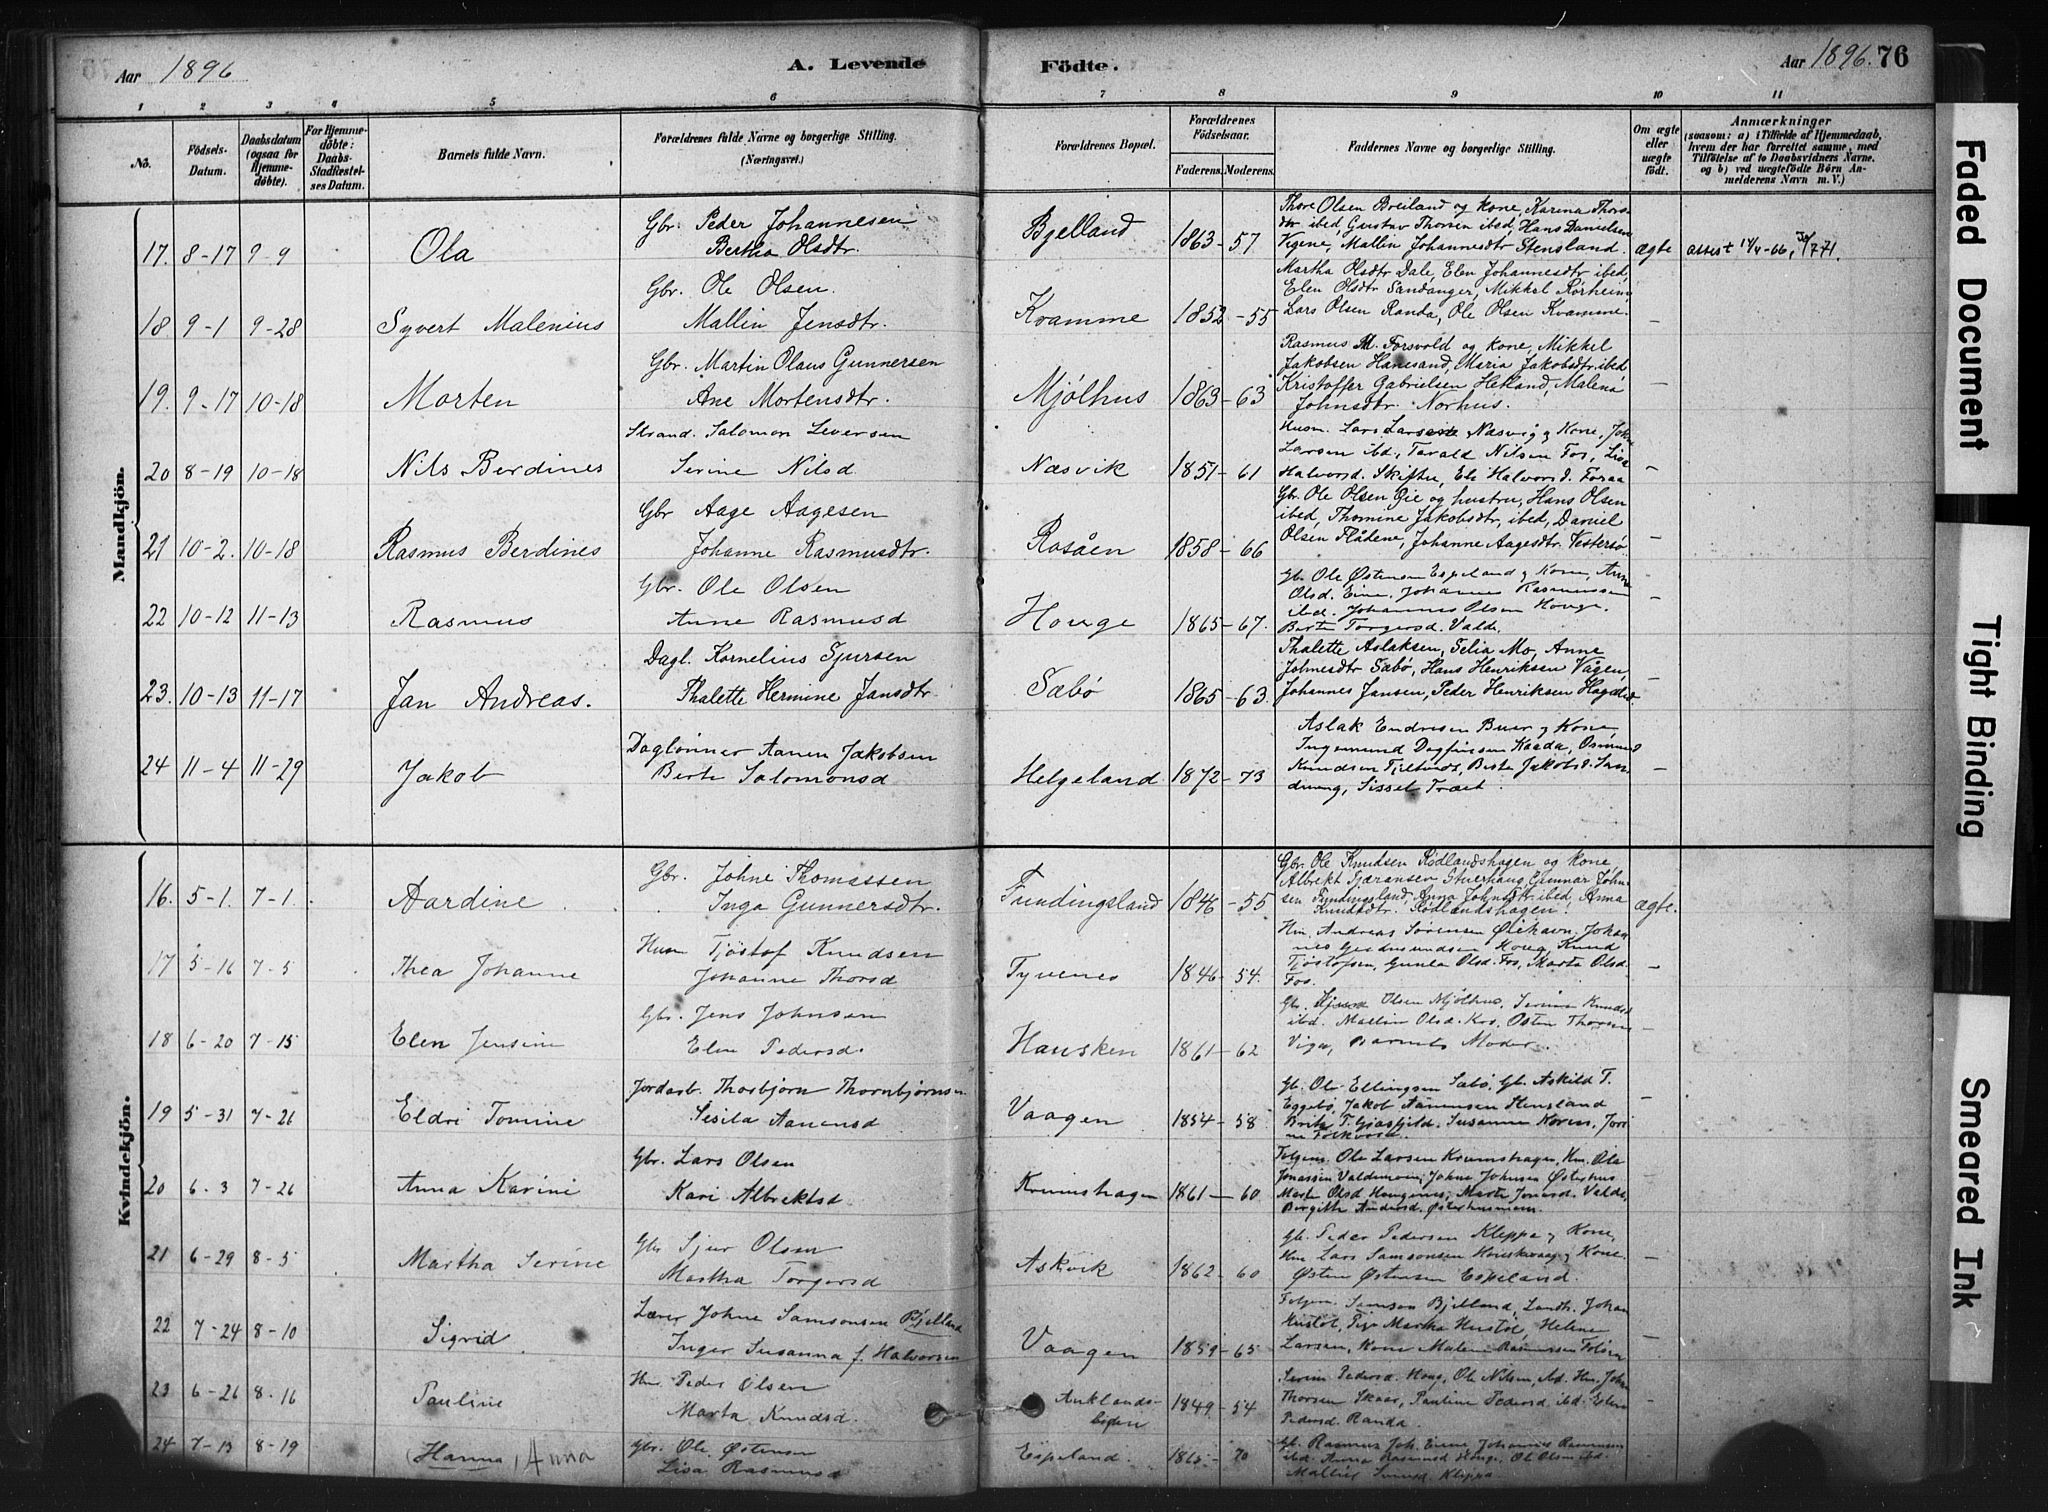 Aar 1896
A. Levende Födte.
Aar 1896. 76
1 2 3 4 5 6 7 8 9 10 11
No.
Födsels-Datum.
Daabsdatum (ogsaa for Hjemmedöbte).
For Hjemmedöbte: Daabs-Stadfæstelses Datum.
Barnets fulde Navn.
Forældrenes fulde Navne og borgerlige Stilling. (Næringsvei.)
Forældrenes Bopæl.
Forældrenes Födselsaar.
Faderens. Moderens.
Faddernes Navne og borgerlige Stilling.
Om ægte eller uægte födt.
Anmærkninger
(saasom: a) i Tilfælde af Hjemmedaab, hvem der har forrettet samme, med Tilföielse af to Daabsvidners Navne. og b) ved uægtefödte Börn Anmelderens Navn m. V.)
Mandkjön.
17. 8-17 9-9 Ola
Gbr. Peder Johannesen
Bertha Olsdtr.
Bjelland 1863-57
Thore Olsen Breiland og kone, Karina Thorsdtr ibed, Gustav Thorsen ibed, Hans Danielsen
Vigene, Mallin Johannesdtr Stensland.
ægte
18. 9-1 9-28 Syvert Malenius
Gbr. Ole Olsen.
Mallin Jensdtr.
Kvamme 1852-55
Martha Olsdtr Dale, Elen Johannesdtr ibed,
Elen Olsdtr Sandanger, Mikkel Rørheim,
Lars Olsen Randa, Ole Olsen Kvamme.
—
19. 9-17 10-18 Morten
Gbr. Martin Olaus Gunnersen
Ane Mortensdtr.
Mjølhus 1863-63
Rasmus M. Forsvold og kone, Mikkel
Jakobsen Hanesand, Maria Jakobsdtr ibed
Kristoffer Gabrielsen Hetland, Malena
Johnsdtr. Norhus.
—
20 8-19 10-18 Nils Berdines
Strand. Salomon Seversen
Serine Nilsd
Næsvik 1851-61
Husm. Lars Larsen Næsvig og Kone, John
Larsen ibd, Tarald Nilsen Fos, Lisa
Halvorsd. Skiftun, Eli Halvorsd. Foraa
—
21 10-2. 10-18 Rasmus Berdines
Gbr Aage Aagesen
Johanne Rasmusdtr.
Rosåen 1858-66
Gbr. Ole Olsen Øie og hustru, Hans Olsen
ibed, Thomine Jakobsdtr, ibed, Daniel
Olsen Flådene, Johanne Aagesdtr. Vestersø
—
22 10-12 11-13 Rasmus
Gbr. Ole Olsen
Anne Rasmusd
Houge 1865-67.
Gb. Ole Østensen Espeland og Kone, Anna
Olsd. Eine, Johannes Rasmussen
ibd. Johannes Olsen Houge.
Berte Torgersd. Valde.
—
23. 10-13 11-17 Jan Andreas.
Dagl. Kornelius Sjursen
Thalette Hermine Jansdtr.
Sæbø 1865-63.
Thalette Aslaksen, Selia Mo, Anne
Johnesdtr Sæbø, Hans Henriksen Vågen,
Johannes Jansen, Peder Henriksen
—
24 11-4 11-29 Jakob
Daglønner Aanen Jakobsen
Berte Salomonsd
Helgeland 1872-73
Aslak Endresen Buer og Kone,
Ingemund Dagfinsen Kaada, Osmund
Knudsen, Berte Jakobsd.
Sissel Træet.
—
Kvindekjön.
16. 5-1. 7-1. Aardine
Gbr. Johne Thomassen
Inga Gunnersdtr.
Fundingsland 1846-55
Gbr. Ole Knudsen Rødlandshagen og kone,
Albrekt Tjøransen Stuerhaug, Gunnar Johnsen Fundingsland, Anna Johnsdtr. ibed, Anna
Knudsdtr. Rødlandshagen.
ægte.
17 5-16 7-5 Thea Johanne
Husm Tjöstof Knudsen
Johanne Thorsd
Tyvenes 1846-54.
Hm. Andreas Sørensen Ølihavn, Johannes Gudmundsen Houg, Knud
Tjöstofsen, Gunla Olsd. Fos, Marta Olsd.
Fos.
—
18 6-20 7-15 Elen Jensine
Gbr. Jens Johnsen
Elen Pedersd.
Hausken 1861-62
Gb. Olsen Mjølhus, Serina Knudsd
ibd. Mallin Olsd. Ros, Østen Thorsen
Viga, Barnets Moder.
—
19 5-31 7-26 Eldri Tomine
Jordarb. Thorbjørn Thornbjørnsen
Sesila Aanensd
Vaagen 1854-58
Gb. Ole Ellingsen Sæbø, Gb. Askild T.
Eggebø, Jakob Aanensen Hensland
Susanne
—
20 6-3 7-26 Anna Karine
Gbr. Lars Olsen
Kari Albrektsd.
Krunshagen 1861-60
Ole Larsen Krunshagen, Hm. Ole
Jonassen, Johne Johnsen Østerhus
Marte Olsd, Marte Jonasd. Valde,
Bergithe Andersd.
—
21 6-29 8-5 Martha Serine
Gbr Sjur Olsen
Martha Torgersd
Askvik 1862-60
Gb. Peder Pedersen Kleppa og Kone,
Hm Lars Samsonsen og Kone.
Østen Østensen Espeland.
—
22 7-24 8-10 Sigrid.
Lærer Johne Samsonsen Bjelland
Inger Susanna f. Halvorsen
Vaagen 1859-65
Samson Bjelland, Landh. Johan
Hustøl, Pige Martha Hustøl, Helene
Larsen, Kone Malene Rasmussen
—
23 6-26 8-16 Pauline
Hm. Peder Olsen
Marta Knudsd.
Auklandseiden 1849-54
Serine Pedersd. Houg, Ole Nilsen, ibd. Hm. Johan
Thorsen Skaar, Pauline Pedersd ibd. Elen
Pedersd. Randa.
—
24 7-13 8-19 (Hanna) Anna
Gbr. Ole Østensen
Lisa Rasmusd
Espeland. 1865-70
Gb. Rasmus Joh. Eine, Johannes Rasmussen
ibd. Anna Rasmusd Houge, Ole Olsen ibd.
Kleppa.
—
Faded Document
Tight Binding
Smeared Ink